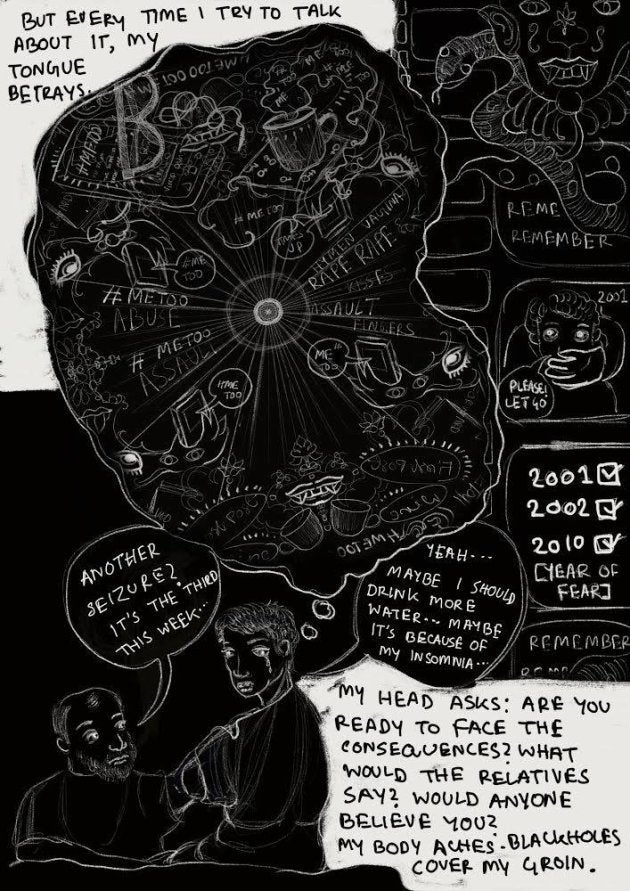 BUT EVERY TIME I TRY TO TALK
ABOUT IT, MY
TONGUE
BETRAYS.
B
#METOO
ME
TOO
#METOO
TIMES
UP
#ME
TOO
HYMEN VAGINA
RAPE RAPE
KISSES
ASSAULT
FINGERS
#METOO
ABUSE
#METOO
ASSAULT
ME
TOO
#ME
TOO
#METOO
REME
REMEMBER
2001
PLEASE!
LET GO
2001
2002
2010
[YEAR OF
FEAR]
REMEMBER
ANOTHER
SEIZURE?
IT'S THE THIRD
THIS WEEK...
YEAH...
MAYBE I SHOULD
DRINK MORE
WATER... MAYBE
IT'S BECAUSE OF
MY INSOMNIA...
MY HEAD ASKS: ARE YOU
READY TO FACE THE
CONSEQUENCES? WHAT
WOULD THE RELATIVES
SAY? WOULD ANYONE
BELIEVE YOU?
MY BODY ACHES. BLACKHOLES
COVER MY GROIN.